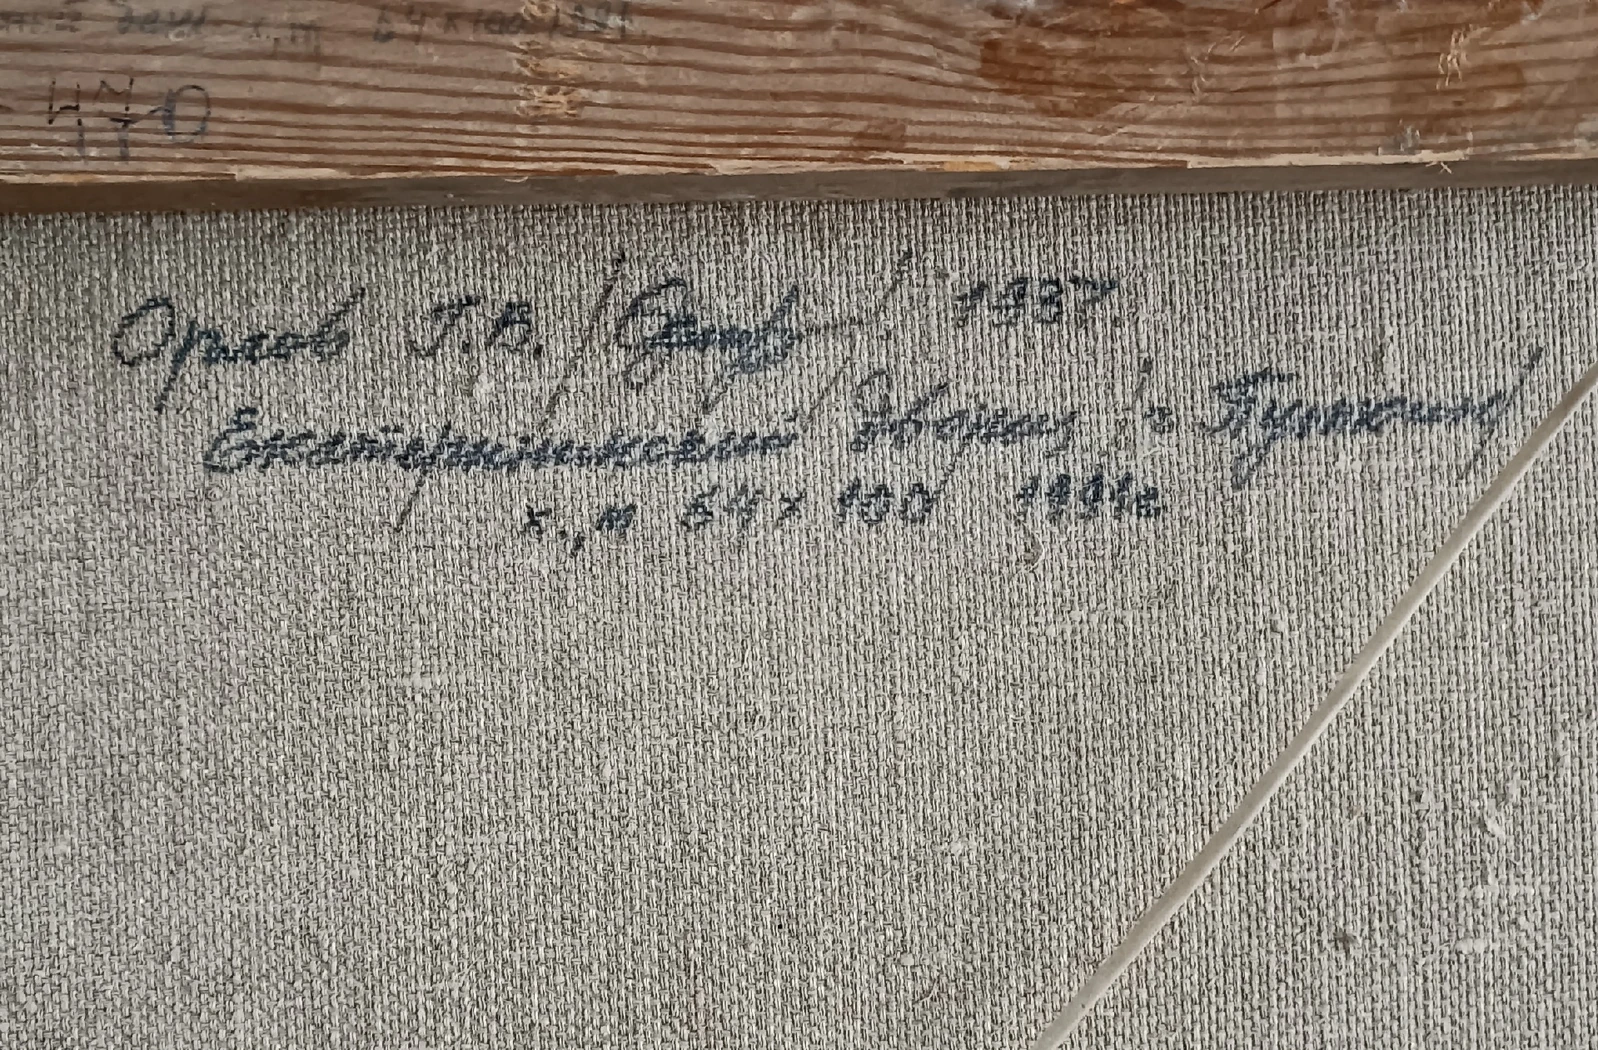 день х., м 64 х 100 1991
470
Орлов Г.В. / / 1937.
Екатерининский дворец /г Пушкин/
х., м 64 х 100 1991г